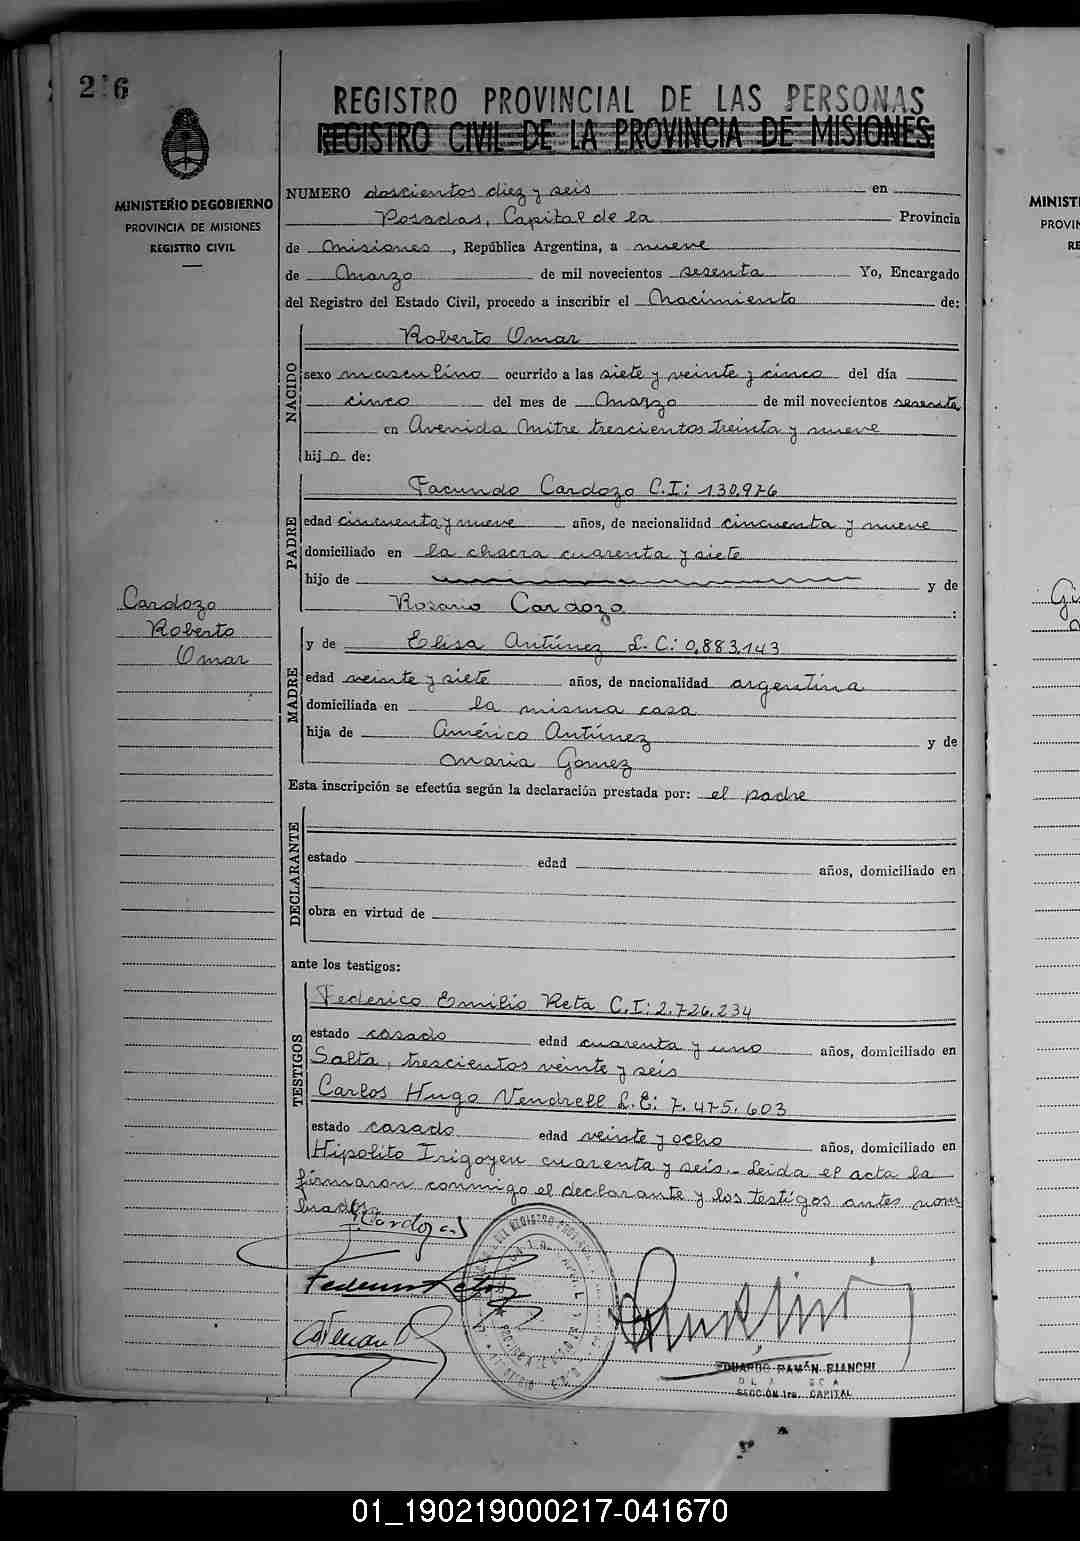 216
MINISTERIO DE GOBIERNO
PROVINCIA DE MISIONES
REGISTRO CIVIL
Cardozo
Roberto
Omar
REGISTRO PROVINCIAL DE LAS PERSONAS
REGISTRO CIVIL DE LA PROVINCIA DE MISIONES
NUMERO doscientos diez y seis en
Posadas, Capital de la Provincia
de Misiones, República Argentina, a nueve
de Marzo de mil novecientos sesenta Yo, Encargado
del Registro del Estado Civil, procedo a inscribir el Nacimiento de:
NACIDO
Roberto Omar
sexo masculino ocurrido a las siete y veinte y cinco del día
cinco del mes de Marzo de mil novecientos sesenta
en Avenida Mitre trescientos treinta y nueve
hijo de:
PADRE
Facundo Cardozo C.I: 130.976
edad cincuenta y nueve años, de nacionalidad cincuenta y nueve
domiciliado en la chacra cuarenta y siete
hijo de y de
Rosario Cardozo :
MADRE
y de Elisa Antúnez L.C: 0.883.143
edad veinte y siete años, de nacionalidad argentina
domiciliada en la misma casa
hija de Américo Antúnez y de
Maria Gomez
Esta inscripción se efectúa según la declaración prestada por: el padre
DECLARANTE
estado edad años, domiciliado en
obra en virtud de
ante los testigos:
TESTIGOS
Federico Emilio Reta C.I: 2.726.234
estado casado edad cuarenta y uno años, domiciliado en
Salta, trescientos veinte y seis
Carlos Hugo Vendrell L.E: 7.475.603
estado casado edad veinte y ocho años, domiciliado en
Hipolito Irigoyen cuarenta y seis.- Leida el acta la
firmaron conmigo el declarante y los testigos antes nom
brados
F. Cardozo
Federico Reta
EDUARDO RAMÓN BIANCHI
SECCIÓN 1ra. CAPITAL
MINISTE
PROVIN
RE
01_190219000217-041670